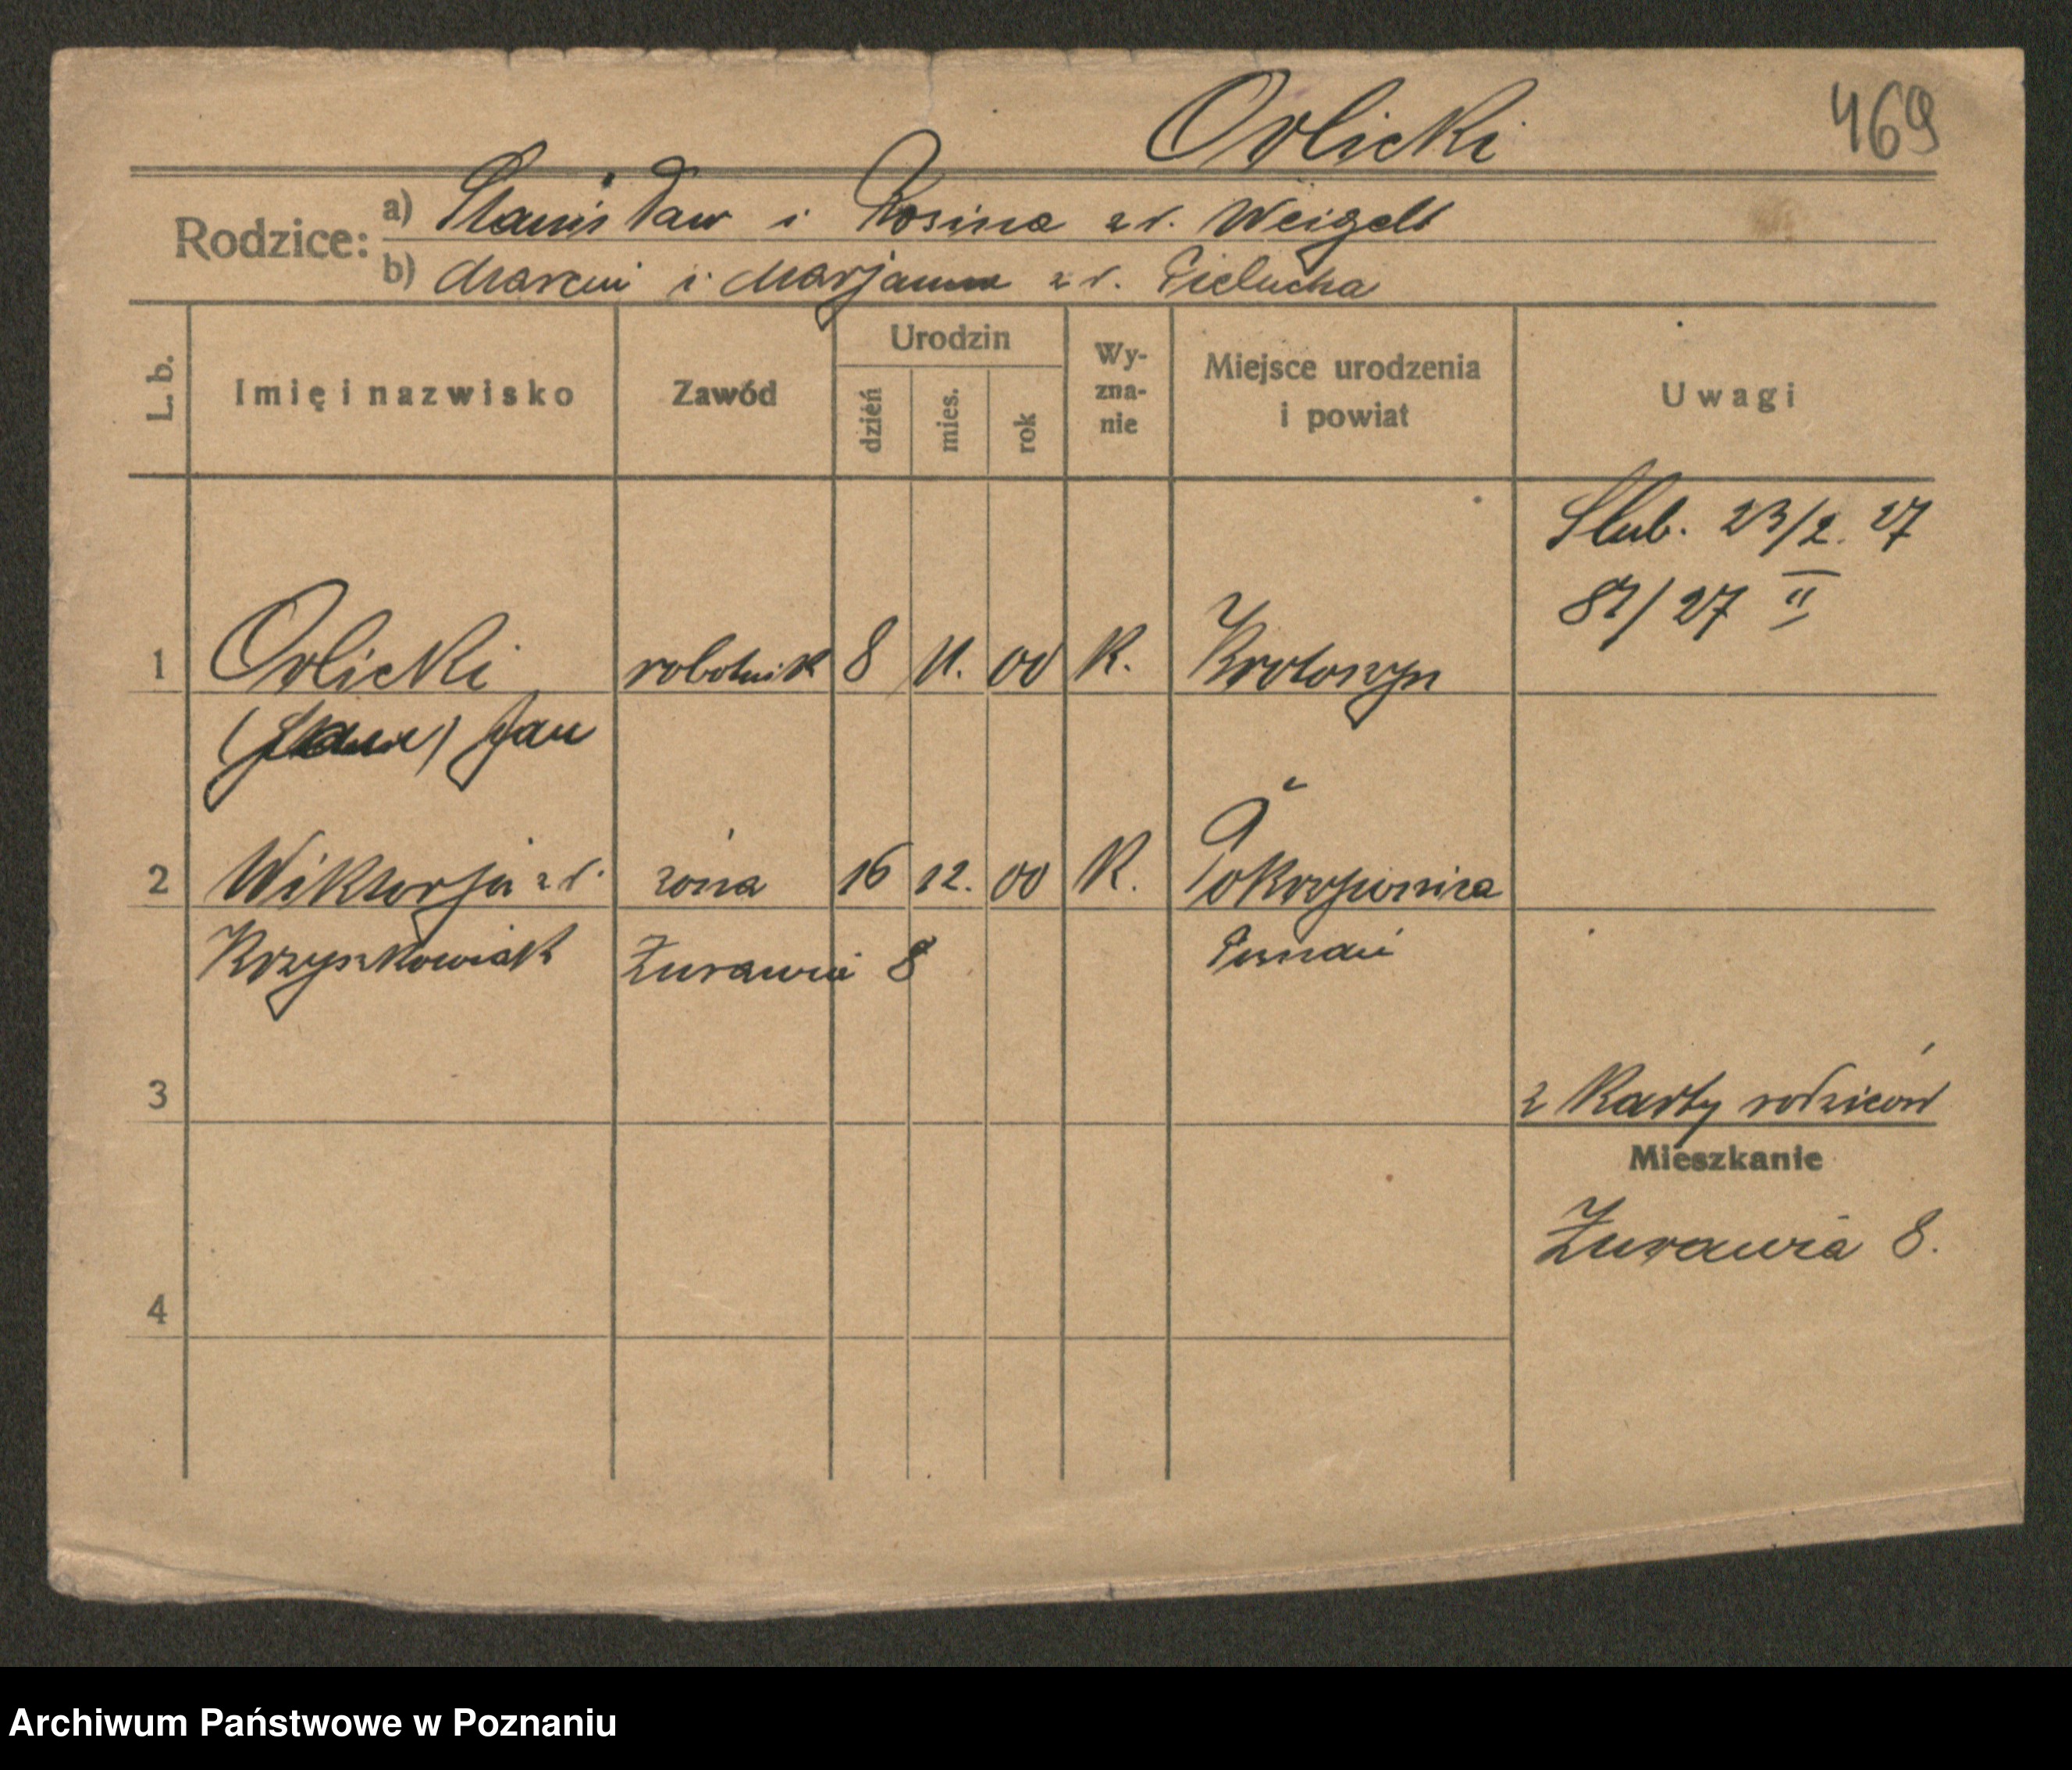 Orlicki 469
Rodzice: a) Stanisław i Rosina z d. Weigelt
b) Marcin i Marjanna z d. Pielucha
L. b. Imię i nazwisko Zawód Urodzin dzień mies. rok Wy-zna-nie Miejsce urodzenia i powiat Uwagi
Ślub. 23/2. 27
87/27 II
1 Orlicki robotnik 8 11. 00 K. Krotoszyn
Jan
2 Wiktorja z d. żona 16 12. 00 K. Pokrzywnica
Krzyszkowiak Żurawia 8 Poznań
3 z Karty rodziców
Mieszkanie
Żurawia 8.
4
Archiwum Państwowe w Poznaniu